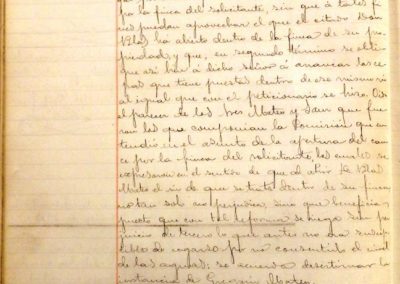 ro la finca del solicitante, sin que á tales fi-
nes puedan aprovechar el que en estado Don
Blas ha abierto dentro de la finca de su pro-
piedad y que, en segundo término se obli-
gue así bar á dicho señor á arrancar las ce-
pas que tiene puestas dentro de ese mismo rio
al igual que con el peticionario se hizo. Oido
el parecer de los tres Mateo y Saur que fue-
ron los que componian la Comisión que en-
tendió en el asunto de la apertura del cau-
ce por la finca del solicitante los cuales se
expresaron en el sentido de que al abrir D. Blas
Mateo el rio de que se trata dentro de su finca
no tan solo no perjudica, sino que beneficia,
puesto que con tal reforma se riega sin per-
juicio de tercero lo que antes no era suscep-
tible de regarse por no consentirlo el nivel
de las aguas; se acuerda desestimar la
instancia de Gregorio Mateo.